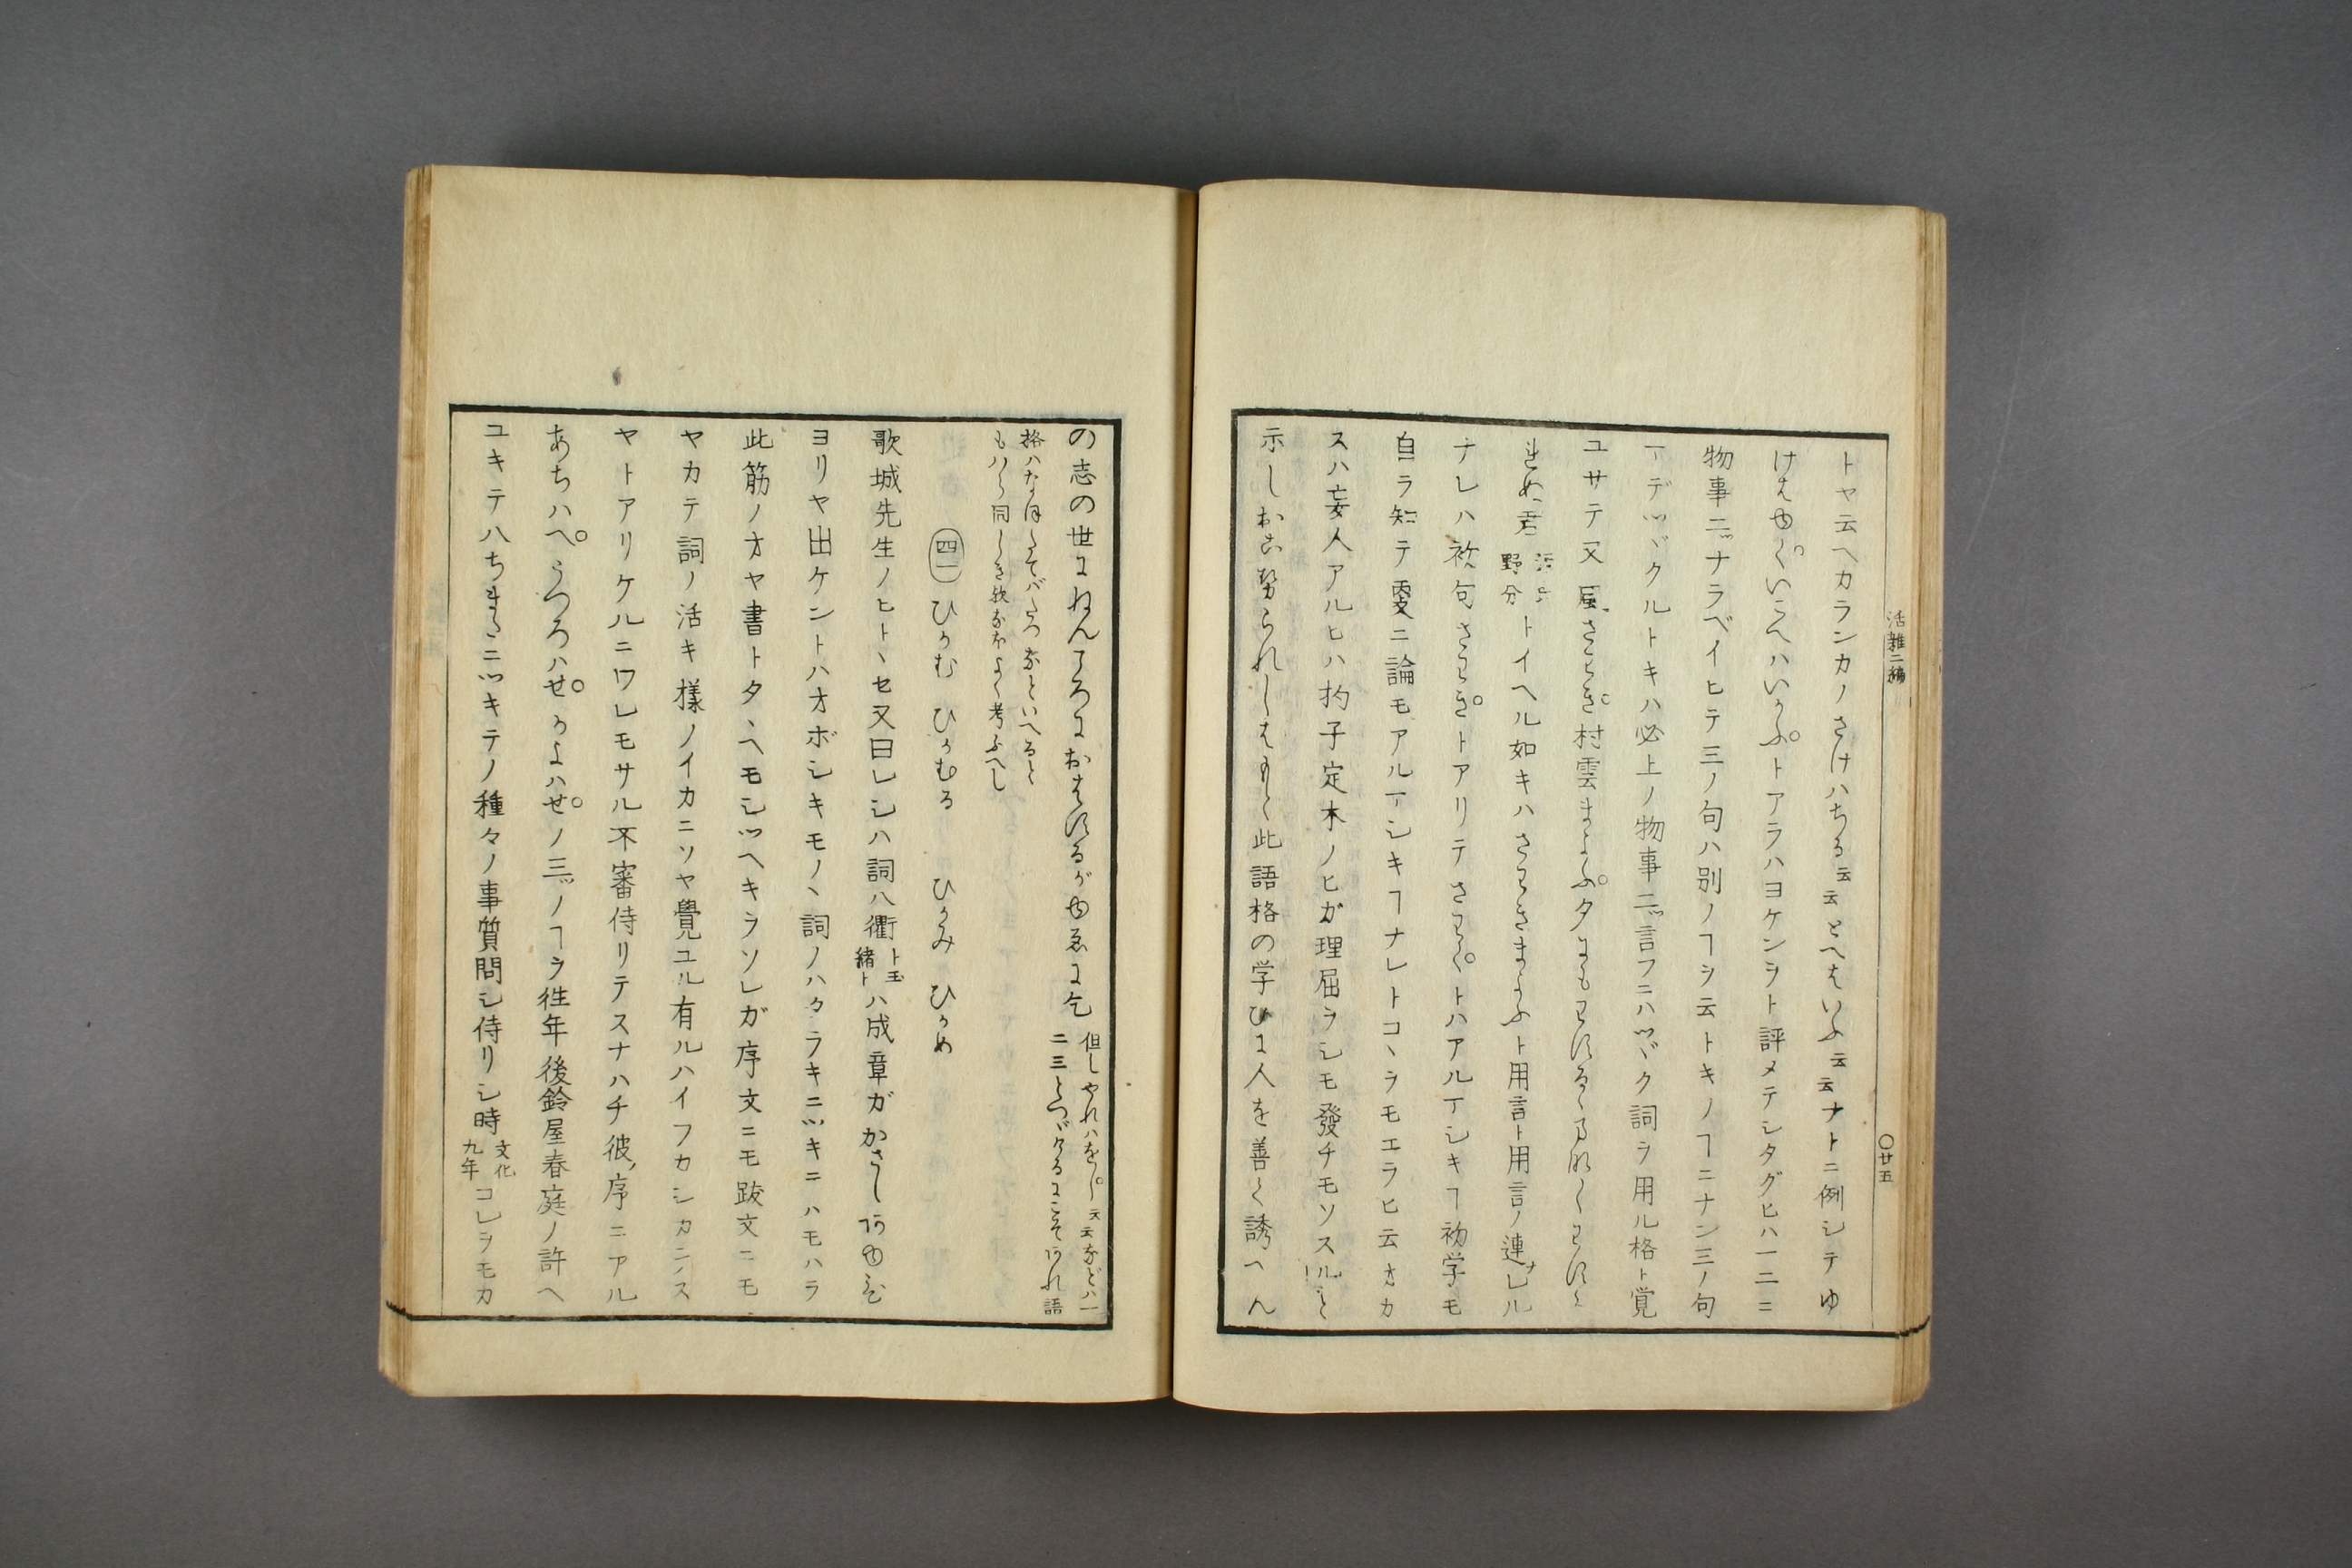 活雑二編
〇廿五
トヤ云ヘカランカノさけハちる云云とへはいふ云云ナトニ例シテゆ
けはゆくいこへハいこふトアラハヨケンヲト評メテシタグヒハ一二ニ
物事二ツナラベイヒテ三ノ句ハ別ノヿヲ云トキノヿニナン三ノ句
マデツヾクルトキハ必上ノ物事二ツ言フニハツヾク詞ヲ用ル格ト覚
ユサテ又風さわぎ村雲まよふ夕にもわするゝ
れぬ君 野分 トイヘル如キハさわきまよふト用言ト用言ノ連レル
ナレハ初句さわぎトアリテさわくトハアルマシキヿ初学モ
自ラ知テ更ニ論モアルマシキヿナレトコヽラモエラヒ云オカ
スハ妄人アルヒハ杓子定木ノヒガ理屈ヲシモ發チモソスル
示しおこ努られしは此語格の学ひに人を善く誘へん
の志の世にねんころにおはするがゆゑに乞
但しやれハをし云云などハ一
二三とつゞけるにこそあれ語
格ハたかはてバたつなといへると
もハら同しき歌なほよく考ふへし
四一 ひかむ ひかむる ひかみ ひかめ
歌城先生ノヒトヽセ又曰レシハ詞八衢ト玉緒トハ成章ガかさしあゆひ
ヨリヤ出ケントハオボシキモノヽ詞ノハタラキニツキニハモハラ
此筋ノオヤ書トタヽヘモシツヘキヲソレガ序文ニモ跋文ニモ
ヤカテ詞ノ活キ様ノイカニソヤ覺ユル有ルハイフカシカニス
ヤトアリケルニワレモサル不審侍リテスナハチ彼序ニアル
あちハへうつろハせかよハせノ三ツノヿヲ往年後鈴屋春庭ノ許ヘ
ユキテ八ちまたニツキテノ種々ノ事質問シ侍リシ時 文化九年 コレヲモカ